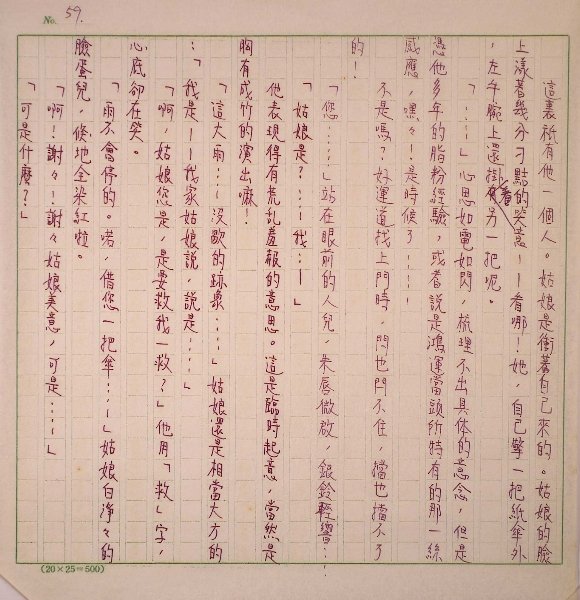 No. 59.
這裏祇有他一個人。姑娘是衝著自己來的。姑娘的臉
上漾著幾分刁黠的笑意——看哪!她,自己擎一把紙傘外
,左手腕上還掛著另一把呢。
「……」心思如電如閃,梳理不出具体的意念,但是
憑他多年的脂粉經驗,或者說是鴻運當頭所特有的那一絲
感應,嘿々!是時候了……
不是嗎?好運道找上門時,閂也閂不住,擋也擋不了
的!
「您……」站在眼前的人兒,朱唇微啟,銀鈴輕響……
「姑娘是?……我……」
他表現得有荒乱羞赧的意思。這是臨時起意,當然是
胸有成竹的演出嘛!
「這大雨……沒歇的跡象……」姑娘還是相當大方的
:「我是——我家姑娘說,說是……」
「啊,姑娘您是,是要救我一救?」他用「救」字,
心底卻在笑。
「雨不會停的。喏,借您一把傘……」姑娘白淨々的
臉蛋兒,倏地全染紅啦。
「啊!謝々!謝々姑娘美意,可是……」
「可是什麼?」
(20×25=500)